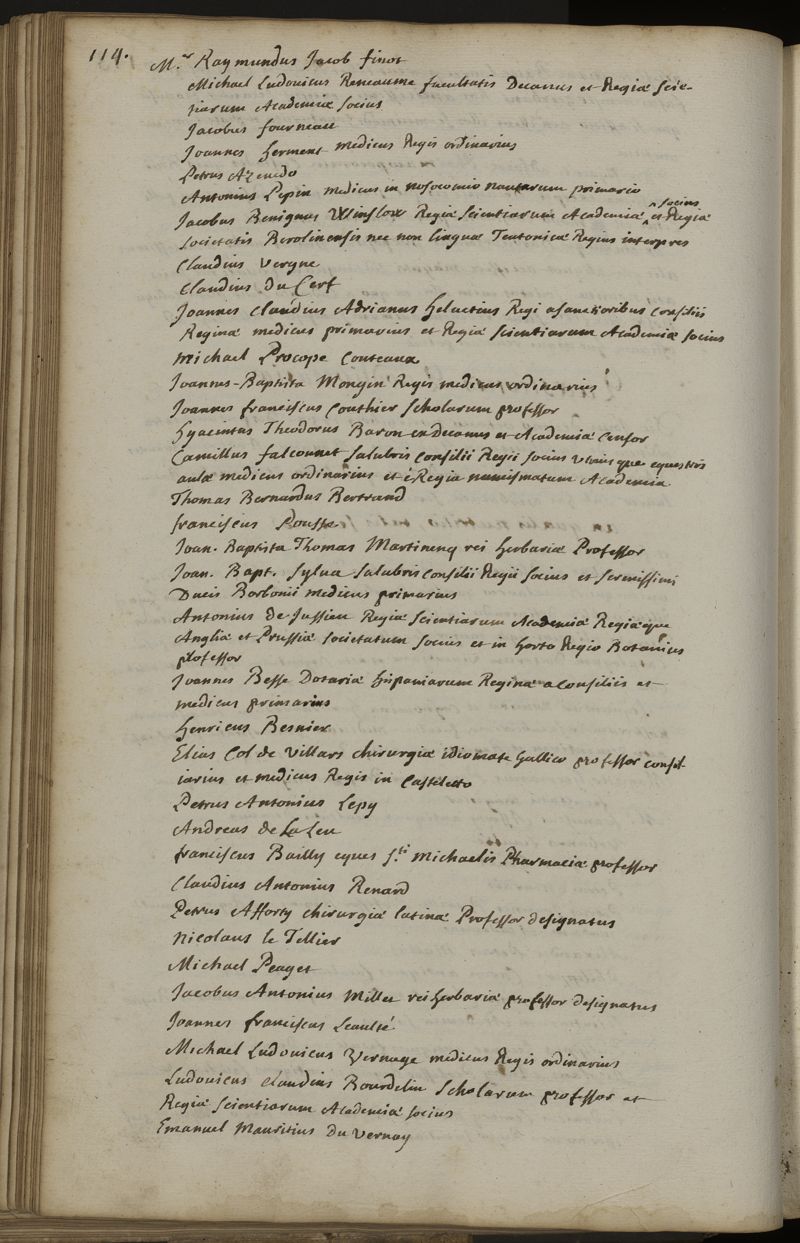 114.
M.r Raymundus Jacob finot
Michael Ludovicus Reneaume facultatis Decanus et Regiæ scie-
tiarum Academiæ socius
Jacobus fourneau
Joannes herment medicus Regis ordinarius
Petrus Azevedo
Antonius Pepin medicus in nosocomio nautarum primario
Jacobus Benignus Winslow Regiæ scientiarum Academiæ ^socius et Regiæ
societatis Berolinensis nec non linguæ Teutonicæ Regius interpres
Claudius vergne
Claudius du Cerf
Joannes Claudius Adrianus helvetius Regi a sanctioribus consiliis
Reginæ medicus primarius et Regiæ scientiarum Academiæ socius
michael Procope Couteaux
Joannes-Baptista Mongin Regis medicus ordinarius
Joannes franciscus Couthier scholarum professor
hyacintus Theodorus Baron exDecanus et Academiæ censor
Camillus falconnet salubris consilii Regii socius utriusque equestris
aulæ medicus ordinarius et è Regia numismatum Academia
Thomas Bernardus Bertrand
franciscus Pousse
Joan. Baptista Thomas Martinenq rei herbariæ Professor
Joan. Bapt. sylva salubris consilii Regii socius et serenissimi
Ducis Borbonii medicus primarius
Antonius de Jussieu Regiæ scientiarum Academiæ Regiæque
Angliæ et Prussiæ societatum socius et in horto Regio Botanicus
professor
Joannes Besse Dotariæ hispaniarum Reginæ a consiliis et
medicus primarius
henricus Besnier
Elias Col de villars chirurgiæ idiomate Gallico professor consil-
iarius et medicus Regis in Castelleto
Petrus Antonius Lepy
Andreas de La Leu
franciscus Bailly eques s.ti michaelis Pharmaciæ professor
Claudius Antonius Renard
Petrus Afforty chirurgiæ latinæ Professor designatus
nicolaus le Tellier
Michael Peaget
Jacobus Antonius millet rei herbariæ professor designatus
Joannes franciscus Leaulté
Michael Ludovicus Vernage medicus Regis ordinarius
Ludovicus Claudius Bourdelin scholarum professor et
Regiæ scientiarum Academiæ socius
Emanuel mauritius du vernay